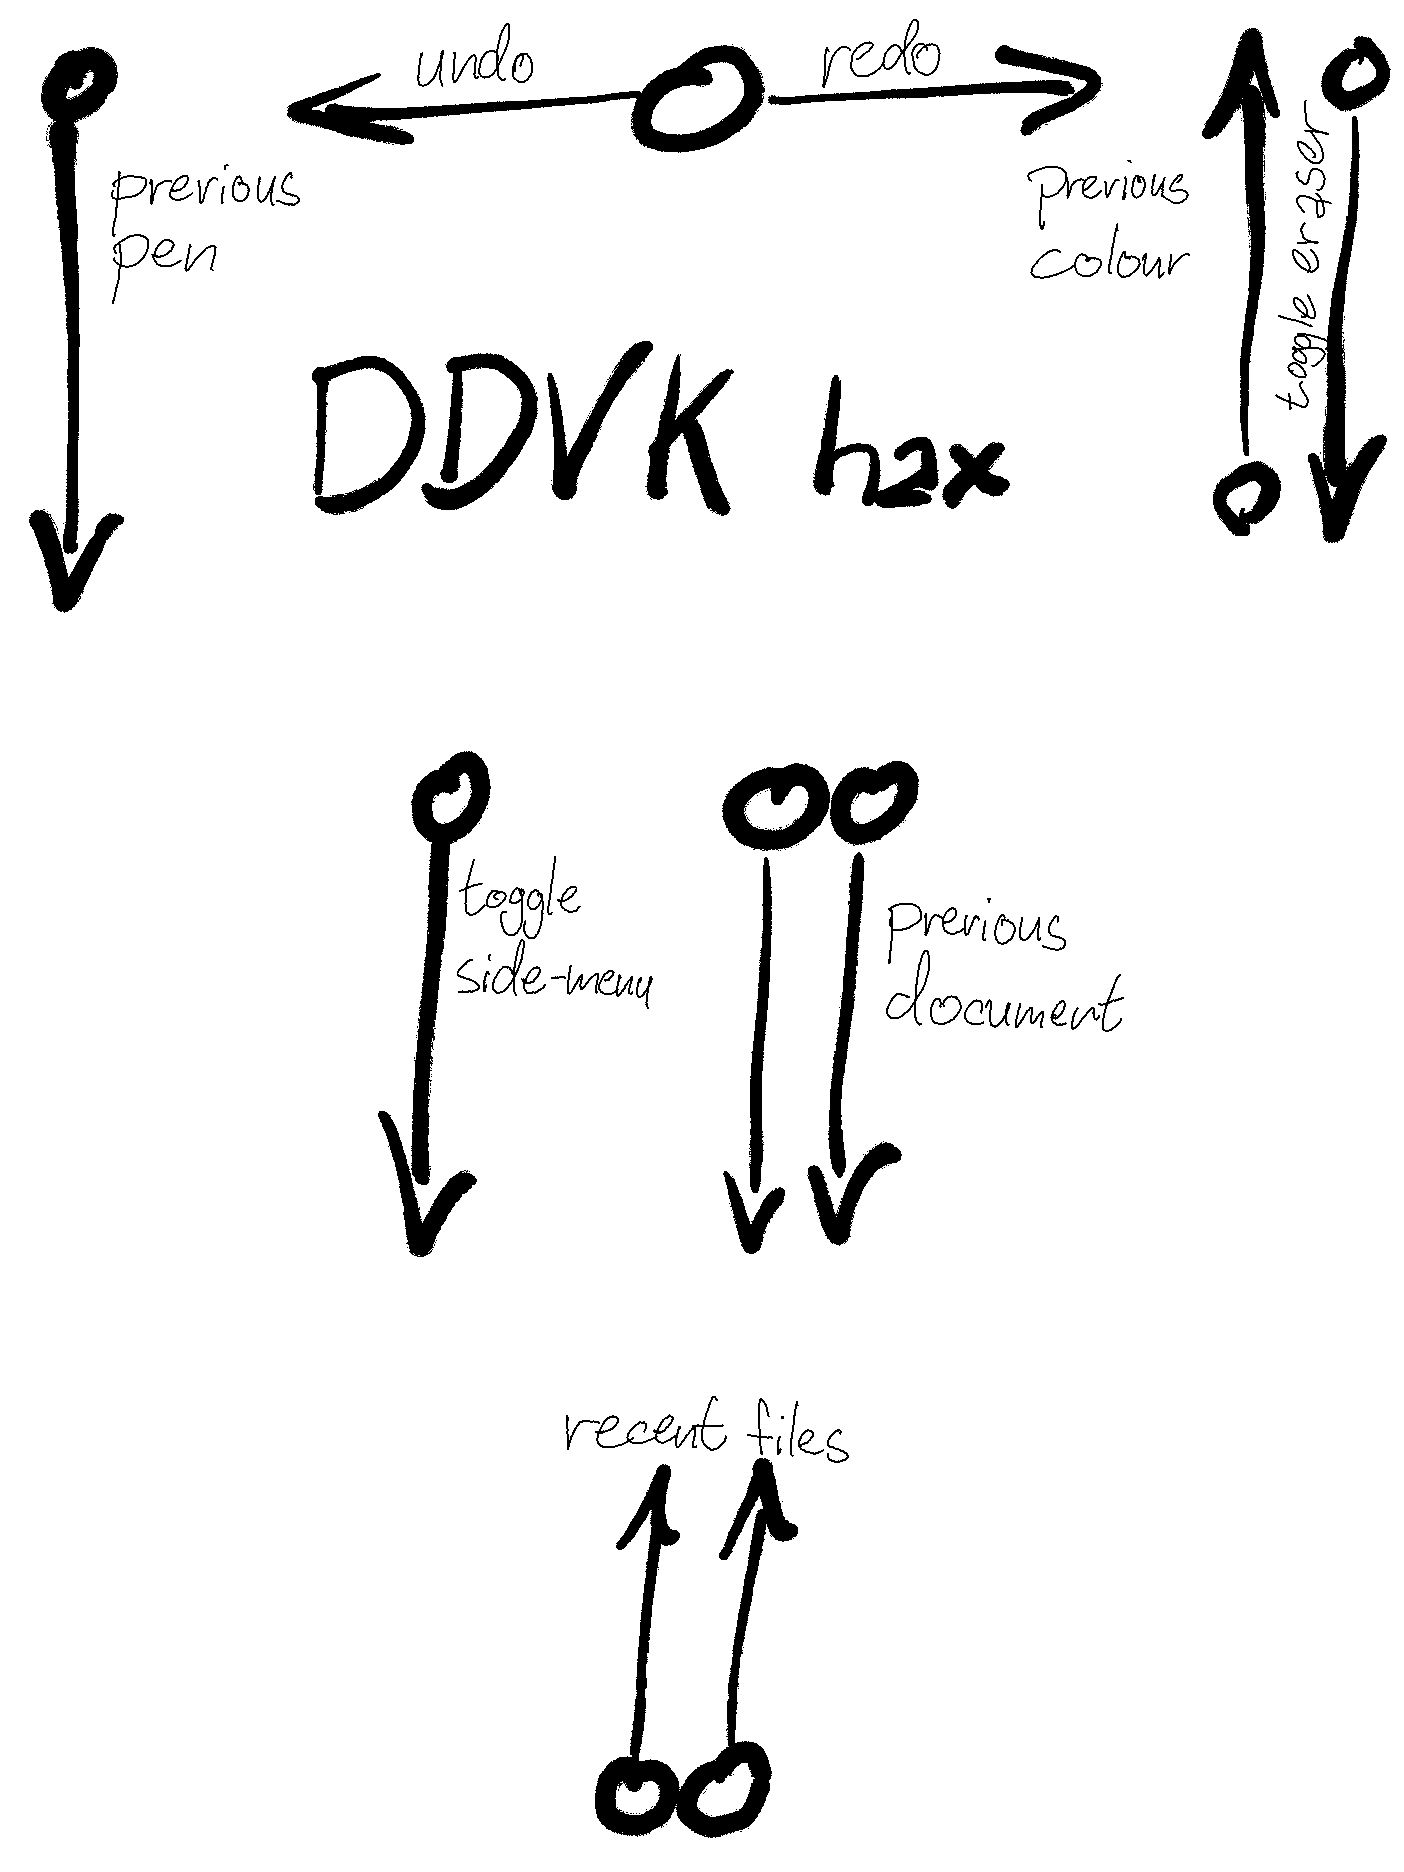 undo
redo
previous
pen
previous
colour
toggle eraser
DDVK hax
toggle
side-menu
previous
document
recent files